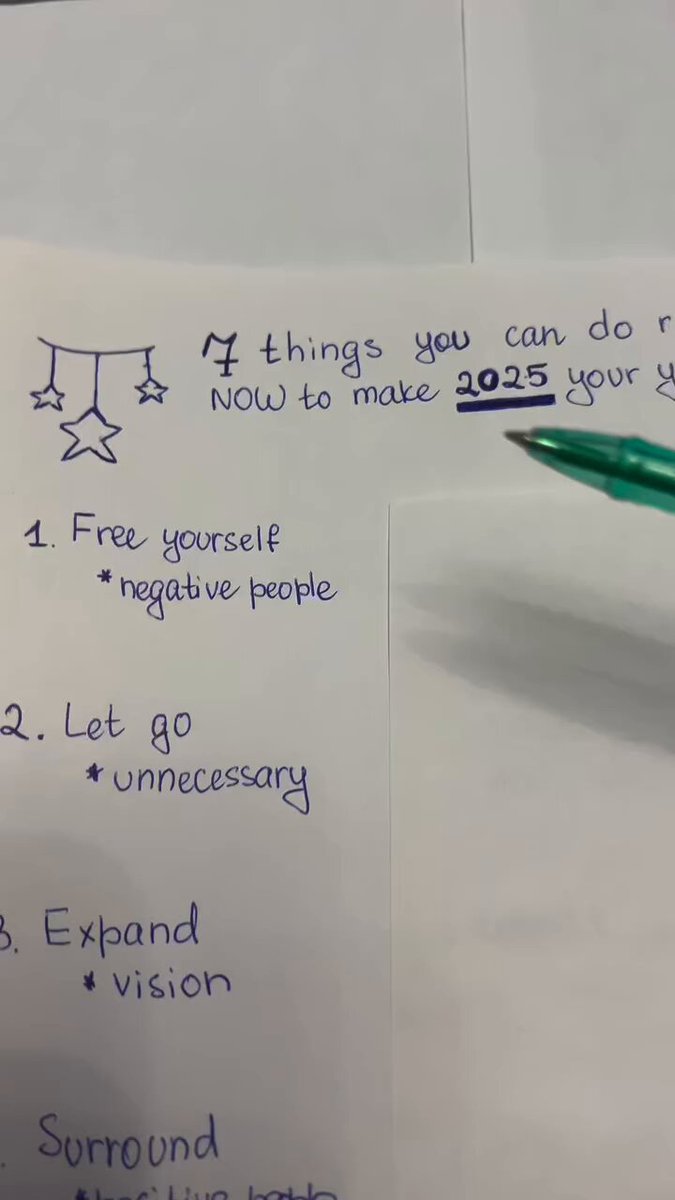 7 things you can do r
NOW to make 2025 your y
1. Free yourself
*negative people
2. Let go
*unnecessary
3. Expand
* vision
. Surround